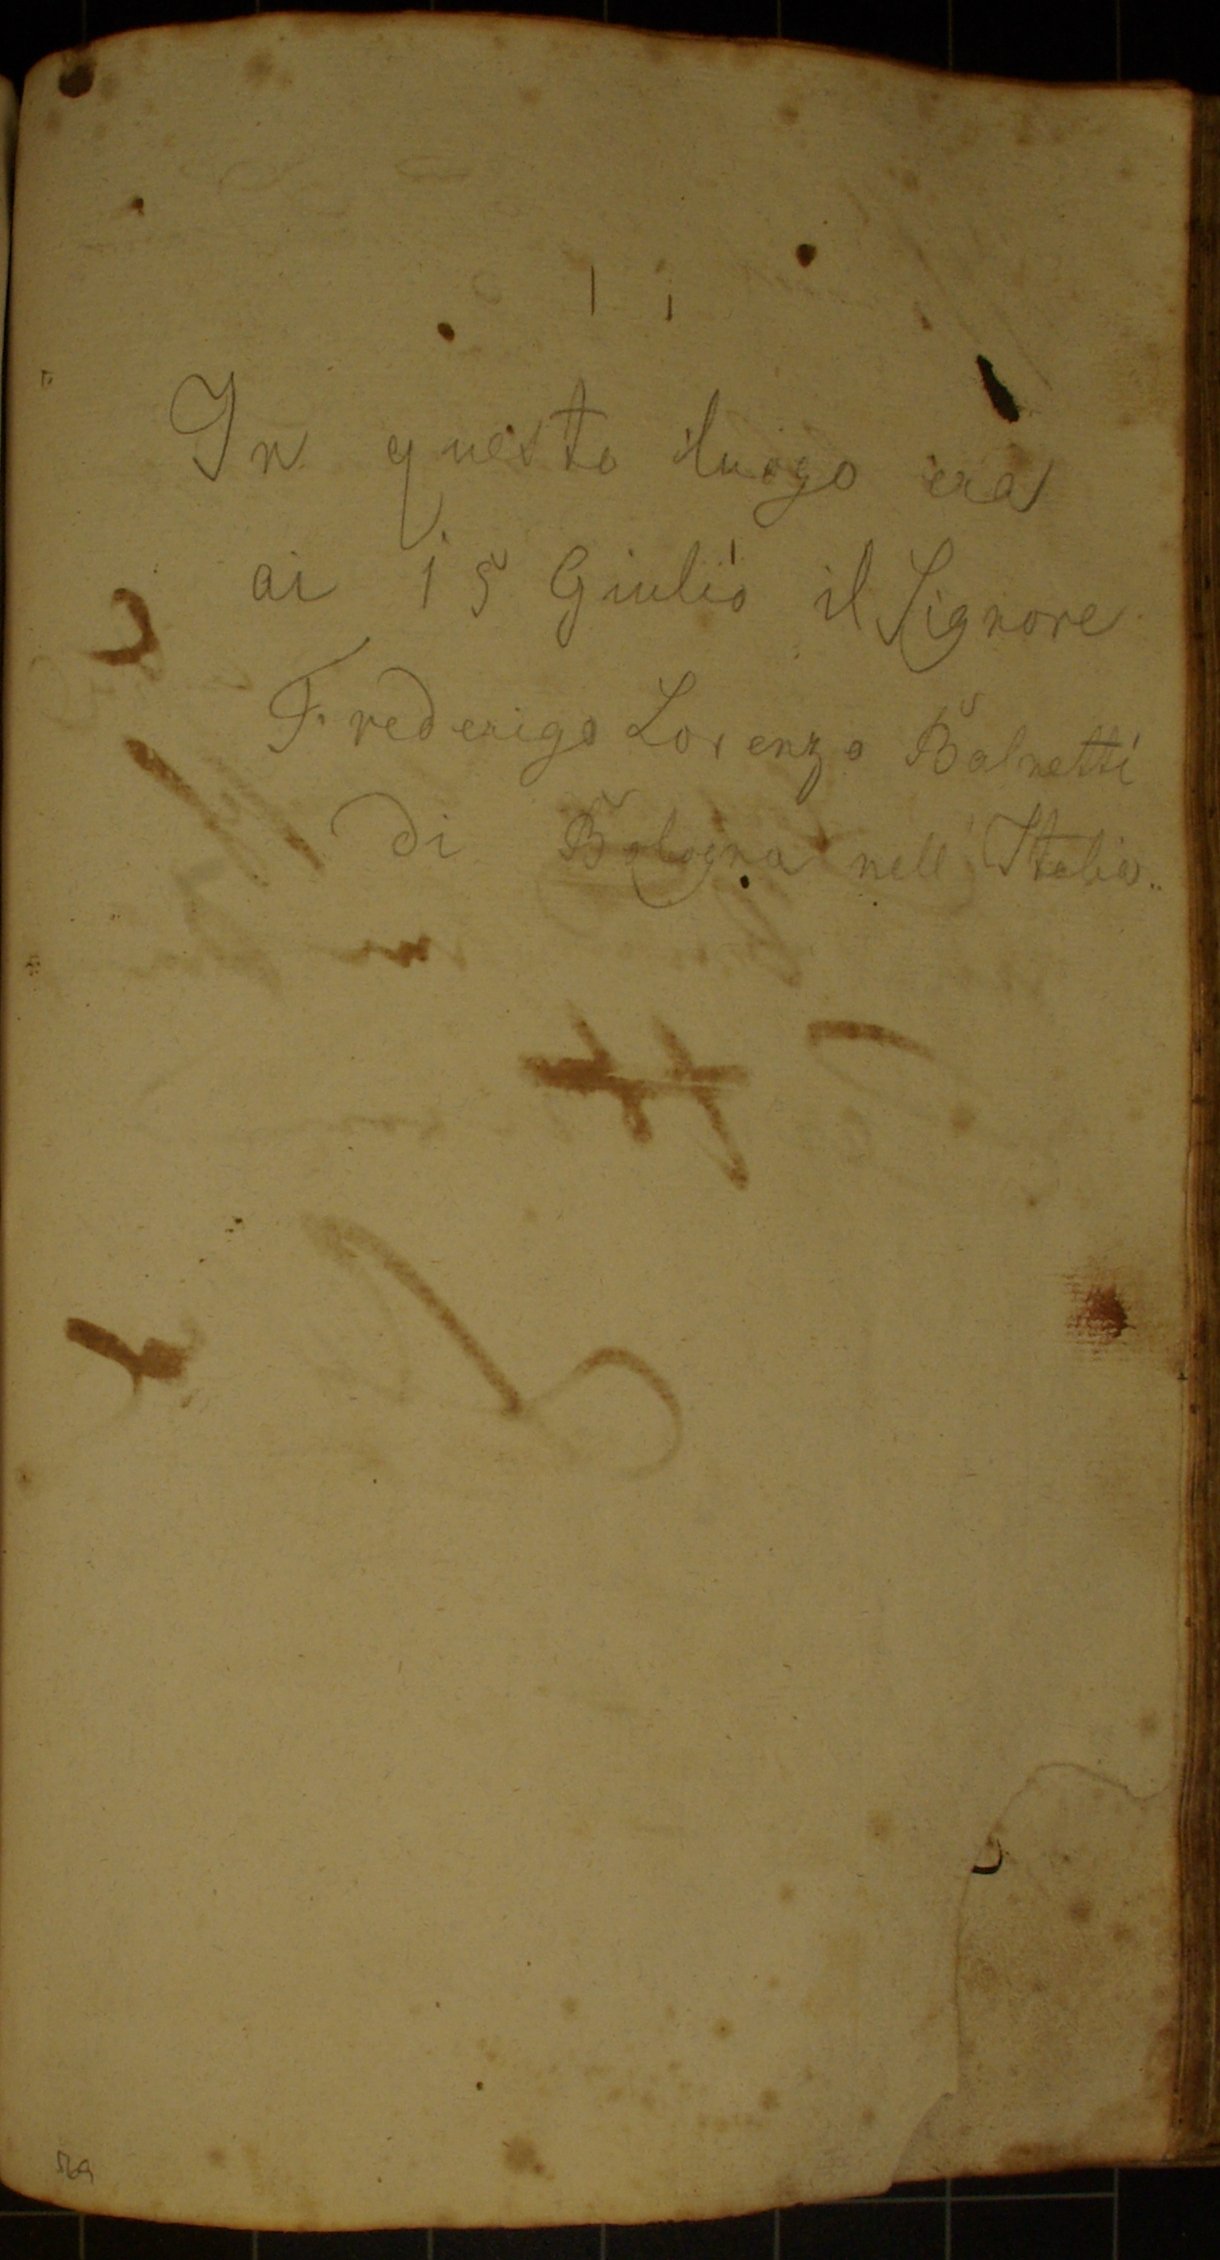 In questo luogo era
ai 15 Giulio il Signore
Frederigo Lorenzo Balnetti
di Bologna nell' Italia..